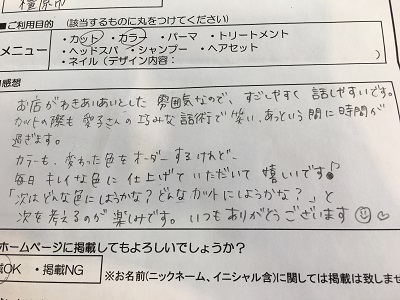 橿原市
■ご利用目的 (該当するものに丸をつけてください)
メニュー
・カット ・カラー ・パーマ ・トリートメント
・ヘッドスパ ・シャンプー ・ヘアセット
・ネイル (デザイン内容： )
感想
お店がわきあいあいとした 雰囲気なので、すごしやすく 話しやすいです。
カットの際も 愛子さんの 巧みな 話術で 笑い、あっという 間に 時間が
過ぎます。
カラーも、変わった 色を オーダーするけれど、
毎日 キレイな色に 仕上げて いただいて 嬉しいです♪
「次はどんな色にしようかな？どんなカットにしようかな？」と
次を 考えるのが 楽しみです。いつも ありがとうございます ☺♡
ホームページに掲載してもよろしいでしょうか？
載OK ・掲載NG ※お名前(ニックネーム、イニシャル含)に関しては掲載は致しませ